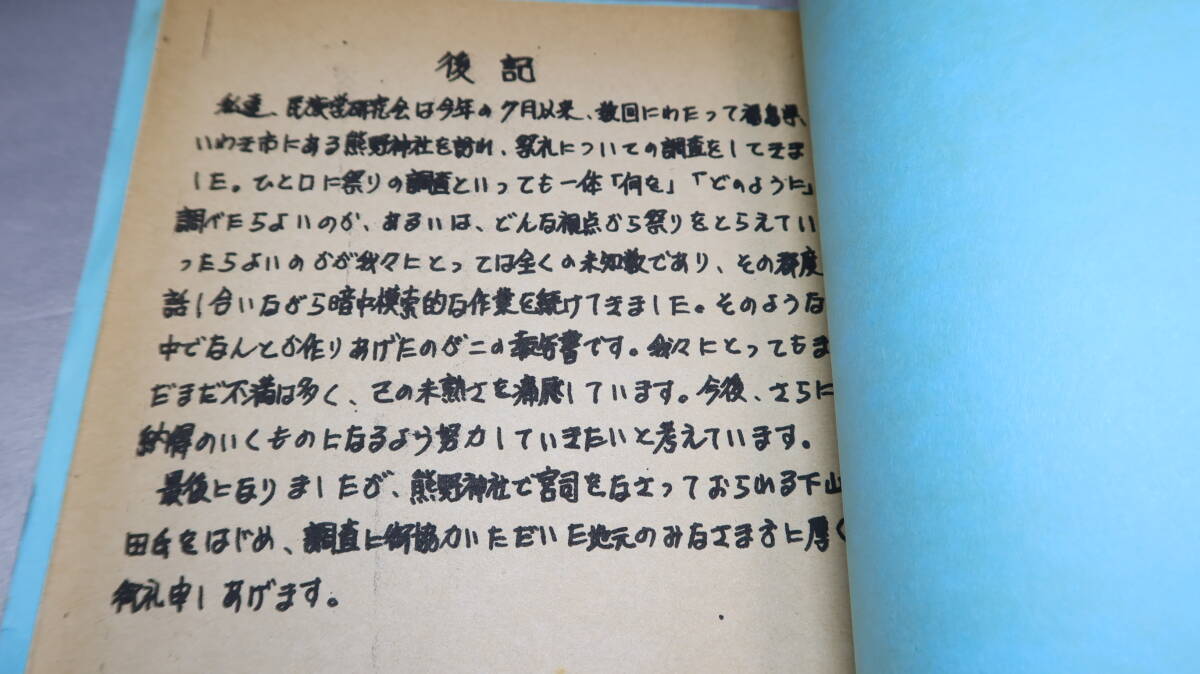 後記
私達、民族学研究会は今年の7月以来、数回にわたって福島県、
いわき市にある熊野神社を訪れ、祭礼についての調査をしてきま
した。ひと口に祭りの調査といっても一体「何を」「どのように」
調べたらよいのか、あるいは、どんな視点から祭りをとらえてい
ったらよいのかが我々にとっては全くの未知数であり、その都度
話し合いながら暗中模索的な作業を続けてきました。そのような
中でなんとか作りあげたのがこの報告書です。我々にとってもま
だまだ不満は多く、己の未熟さを痛感しています。今後、さらに
納得のいくものになるよう努力していきたいと考えています。
最後になりましたが、熊野神社で宮司をなさっておられる下山
田氏をはじめ、調査に御協力いただいた地元のみなさま方に厚く
御礼申しあげます。